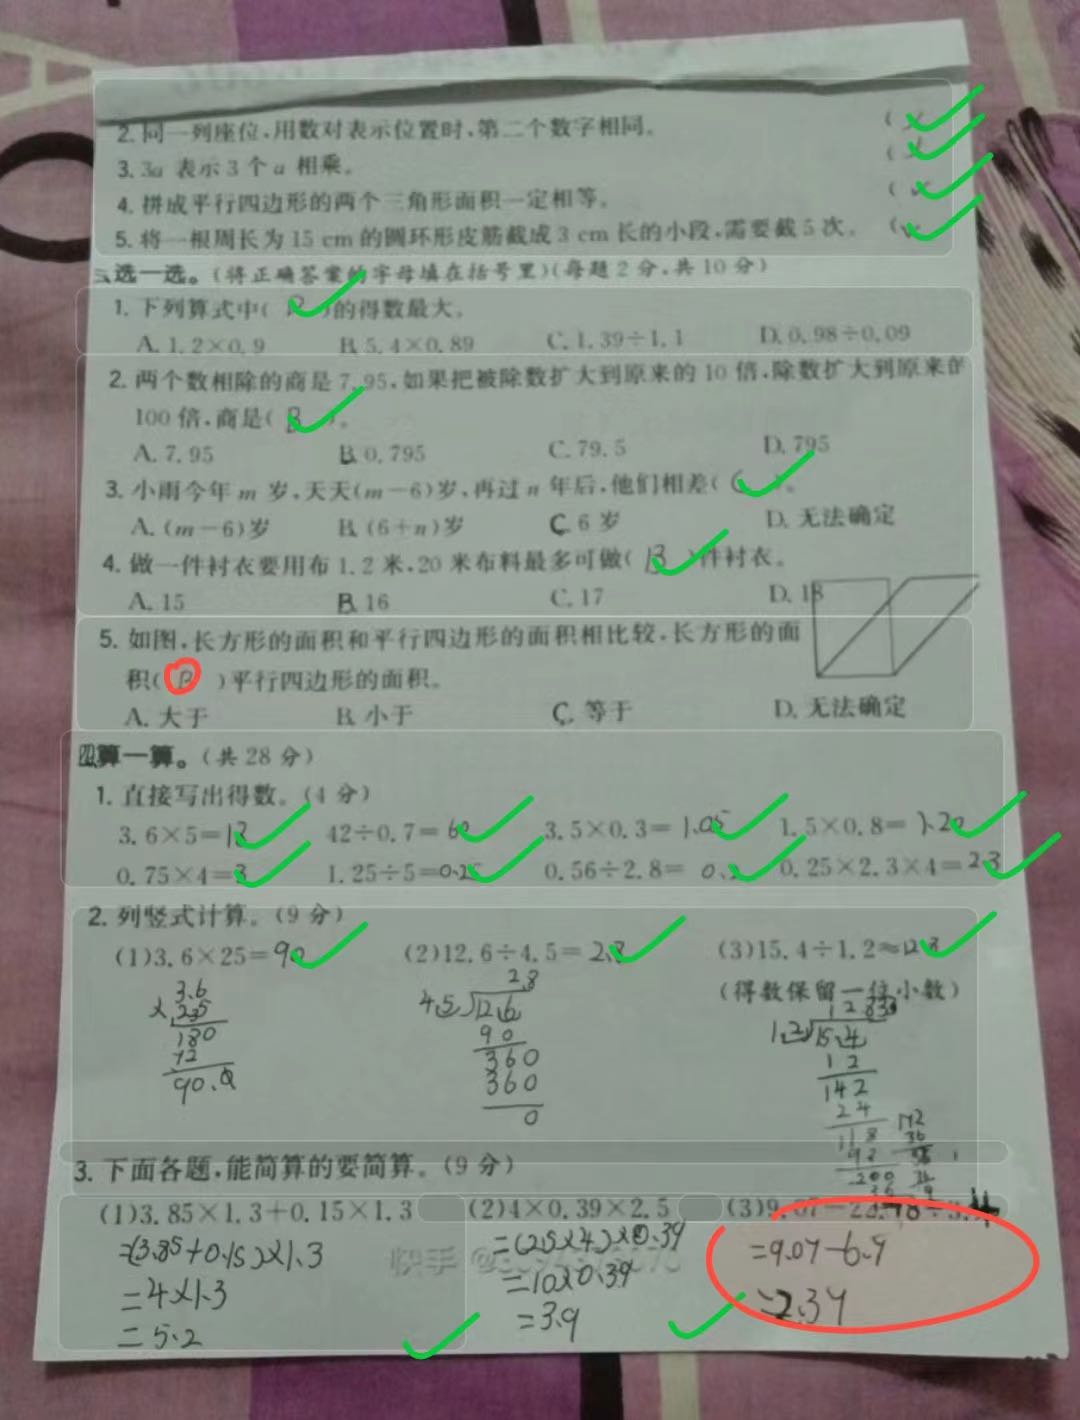 2. 同一列座位,用数对表示位置时,第二个数字相同。 ( × )
3. 3a 表示 3 个 a 相乘。 ( × )
4. 拼成平行四边形的两个三角形面积一定相等。 ( √ )
5. 将一根周长为 15 cm 的圆环形皮筋截成 3 cm 长的小段,需要截 5 次。 ( √
三、选一选。(将正确答案的字母填在括号里)(每题 2 分,共 10 分)
1. 下列算式中( B )的得数最大。
A. 1.2×0.9 B. 5.4×0.89 C. 1.39÷1.1 D. 0.98÷0.09
2. 两个数相除的商是 7.95,如果把被除数扩大到原来的 10 倍,除数扩大到原来的
100 倍,商是( B )。
A. 7.95 B. 0.795 C. 79.5 D. 795
3. 小雨今年 m 岁,天天(m-6)岁,再过 n 年后,他们相差( C )。
A. (m-6)岁 B. (6+n)岁 C. 6 岁 D. 无法确定
4. 做一件衬衣要用布 1.2 米,20 米布料最多可做( B )件衬衣。
A. 15 B. 16 C. 17 D. 18
5. 如图,长方形的面积和平行四边形的面积相比较,长方形的面
积( B )平行四边形的面积。
A. 大于 B. 小于 C. 等于 D. 无法确定
四、算一算。(共 28 分)
1. 直接写出得数。(4 分)
3.6×5=18 42÷0.7=60 3.5×0.3=1.05 1.5×0.8=1.20
0.75×4=3 1.25÷5=0.25 0.56÷2.8=0.2 0.25×2.3×4=2.3
2. 列竖式计算。(9 分)
(1)3.6×25=90 (2)12.6÷4.5=2.8 (3)15.4÷1.2≈12.8
(得数保留一位小数)
3.6
×25
180
72
90.0
2.8
4.5 12.6
90
360
360
0
1.2 15.4
12
142
24
3. 下面各题,能简算的要简算。(9 分)
(1)3.85×1.3+0.15×1.3 (2)4×0.39×2.5 (3)9.07-22.78÷3.4
=(3.85+0.15)×1.3 =(2.5×4)×0.39 =9.07-6.7
=4×1.3 =10×0.39 =2.37
=5.2 =3.9
快手